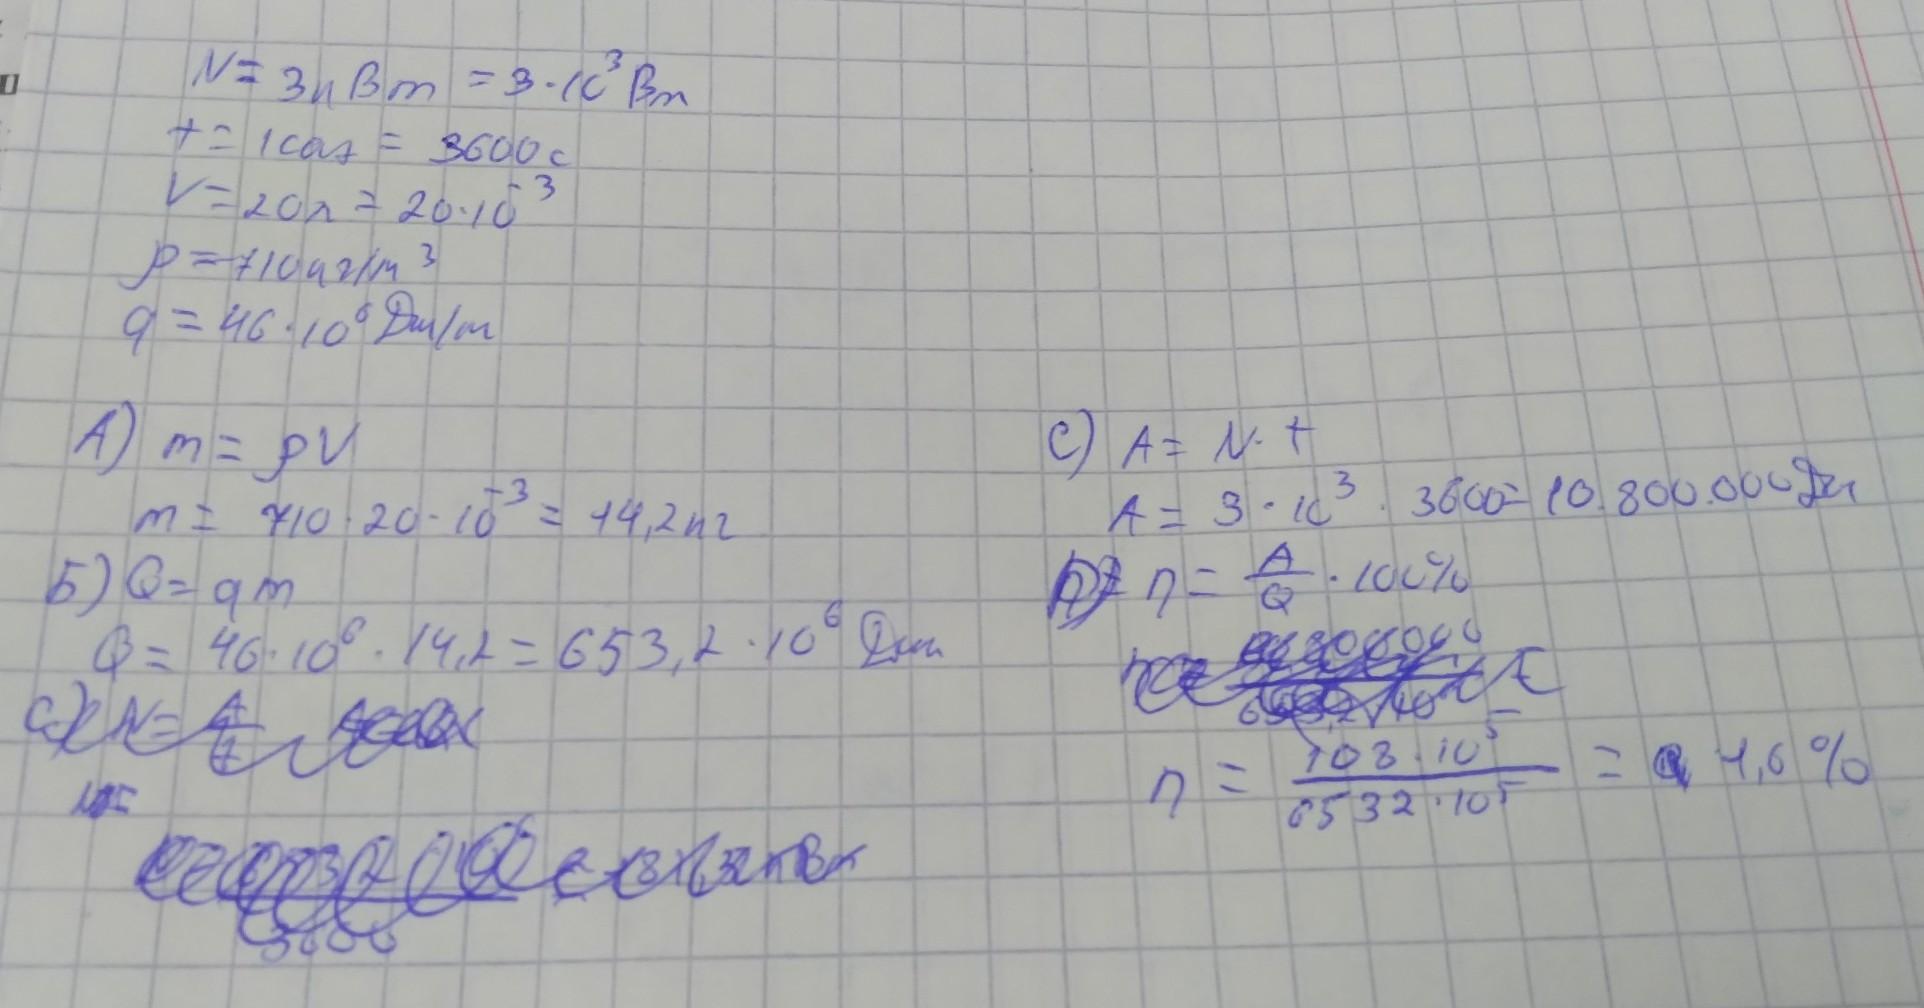 N = 3кВт = 3·10³ Вт
t = 1 саз = 3600 с
V = 20л = 20·10⁻³
ρ = 710 кг/м³
q = 46·10⁶ Дж/кг
А) m = ρV
m = 710·20·10⁻³ = 14,2 кг
Б) Q = qm
Q = 46·10⁶·14,2 = 653,2·10⁶ Дж
C) N = A/t
N =
3600
C) A = N·t
A = 3·10³·3600 = 10.800.000 Дж
D) η = A/Q · 100%
η = 108·10⁵ / 6532·10⁵ = 1,6%